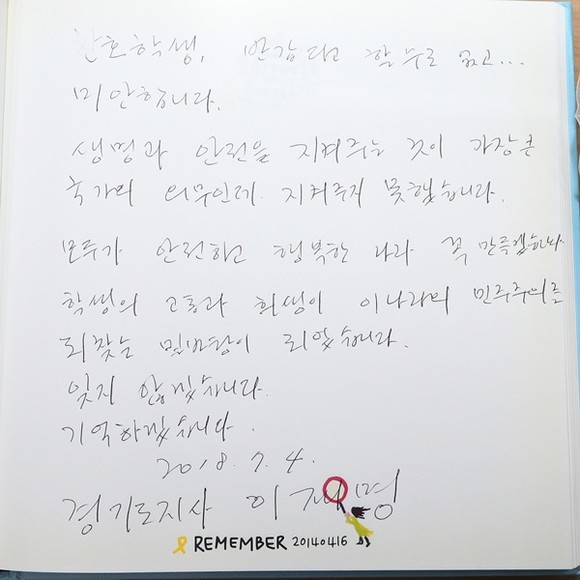 찬호학생, 반갑다고 할 수도 없고...
미안합니다.
생명과 안전을 지켜주는 것이 가장 큰
국가의 의무인데 지켜주지 못했습니다.
모두가 안전하고 행복한 나라 꼭 만들겠습니다
학생의 고통과 희생이 이나라의 민주주의를
되찾는 밑바탕이 되었습니다.
잊지 않겠습니다.
기억하겠습니다.
2018. 7. 4.
경기도지사 이재명
REMEMBER 20140416